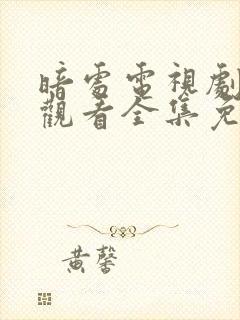 暗處電視劇
觀看全集免
黃馨